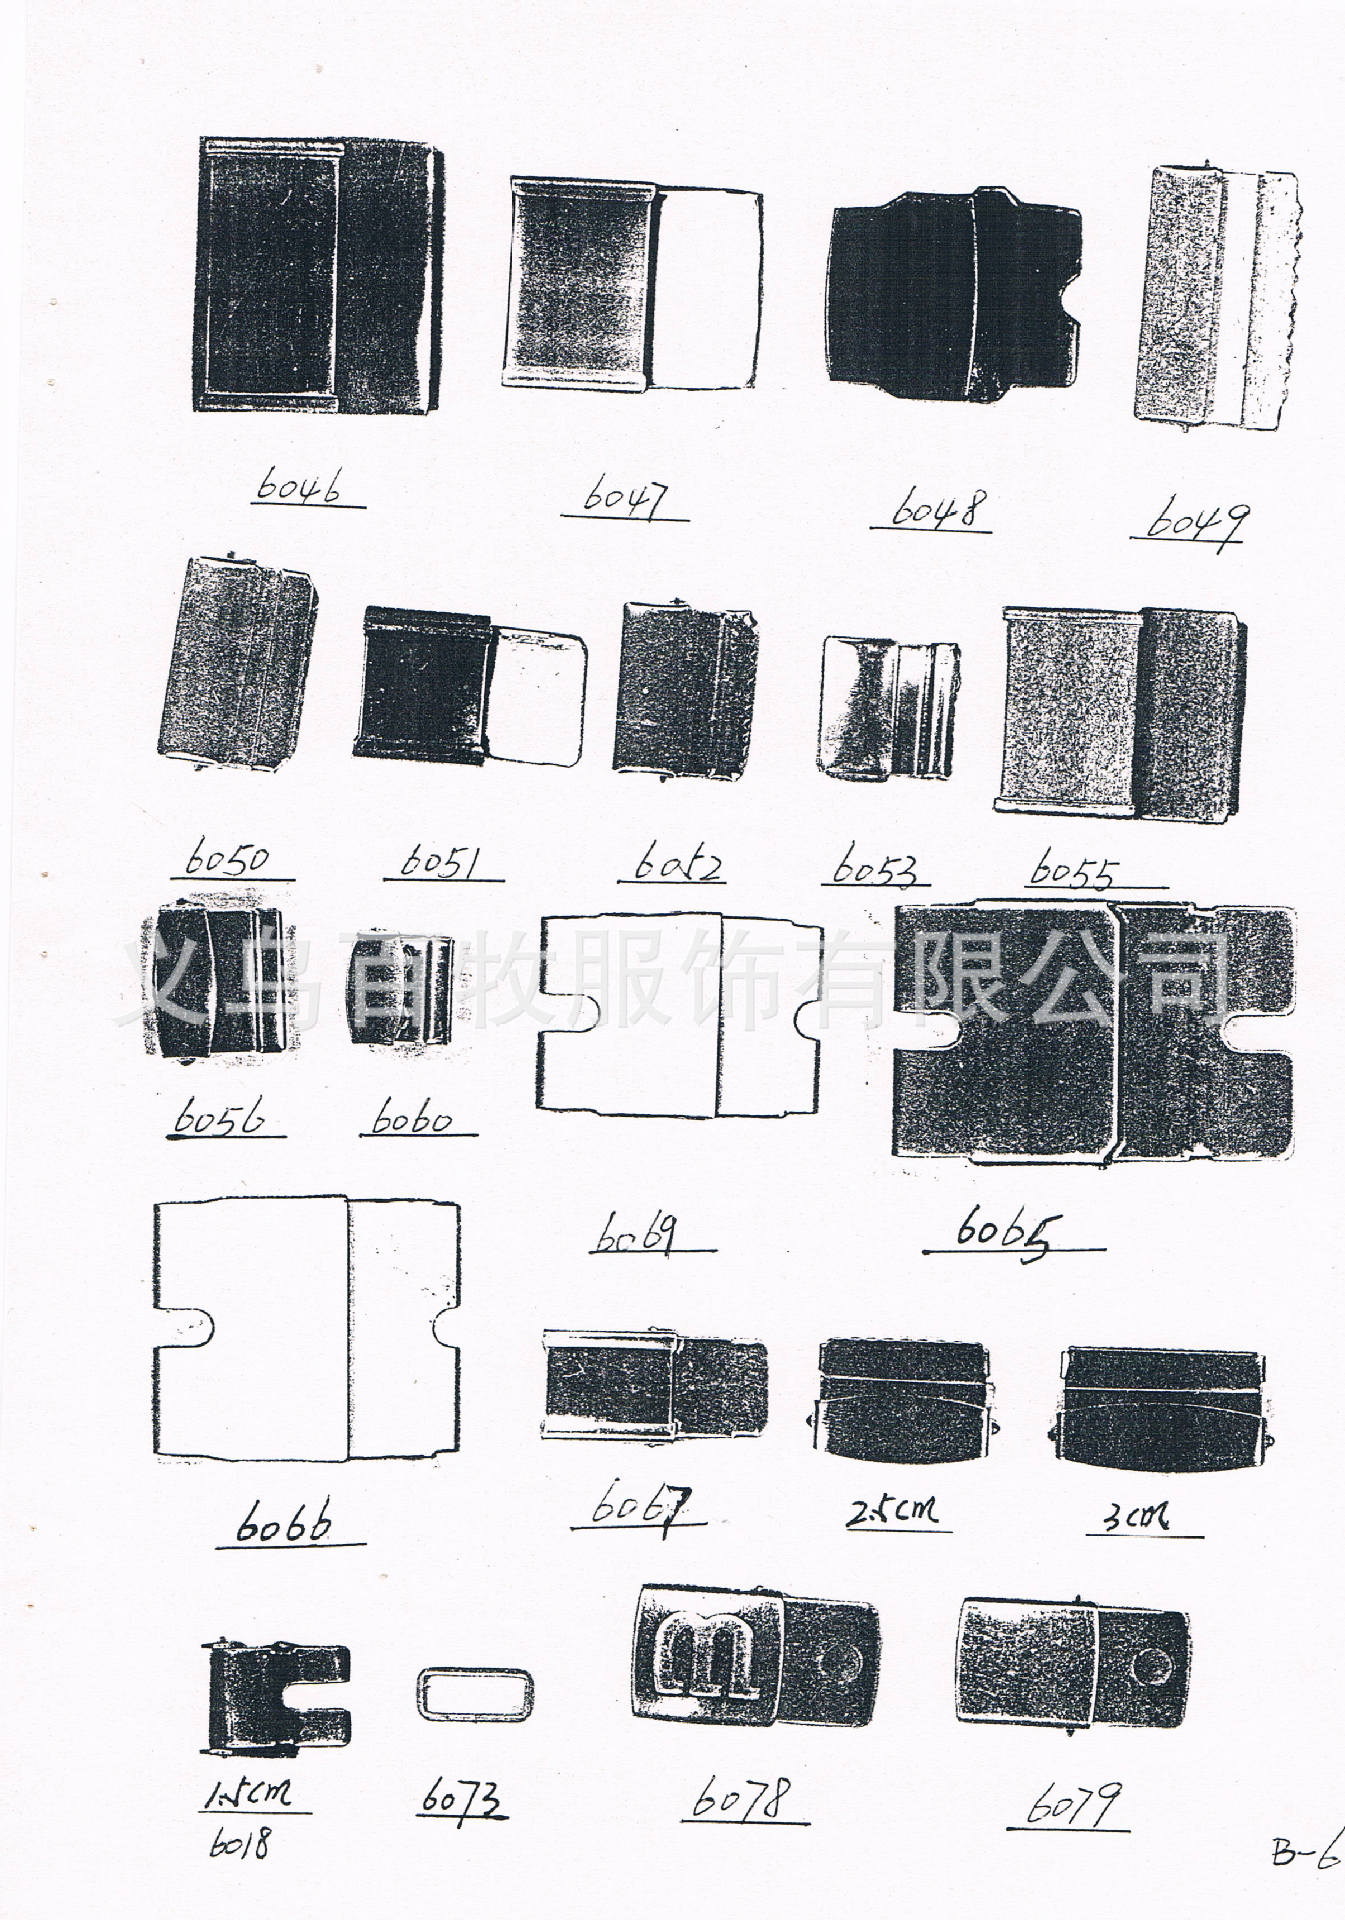 6046
6047
6048
6049
6050
6051
6052
6053
6055
义乌百牧服饰有限公司
6056
6060
6069
6065
6066
6067
2.5cm
3cm
m
1.5cm
6018
6073
6078
6079
B-6